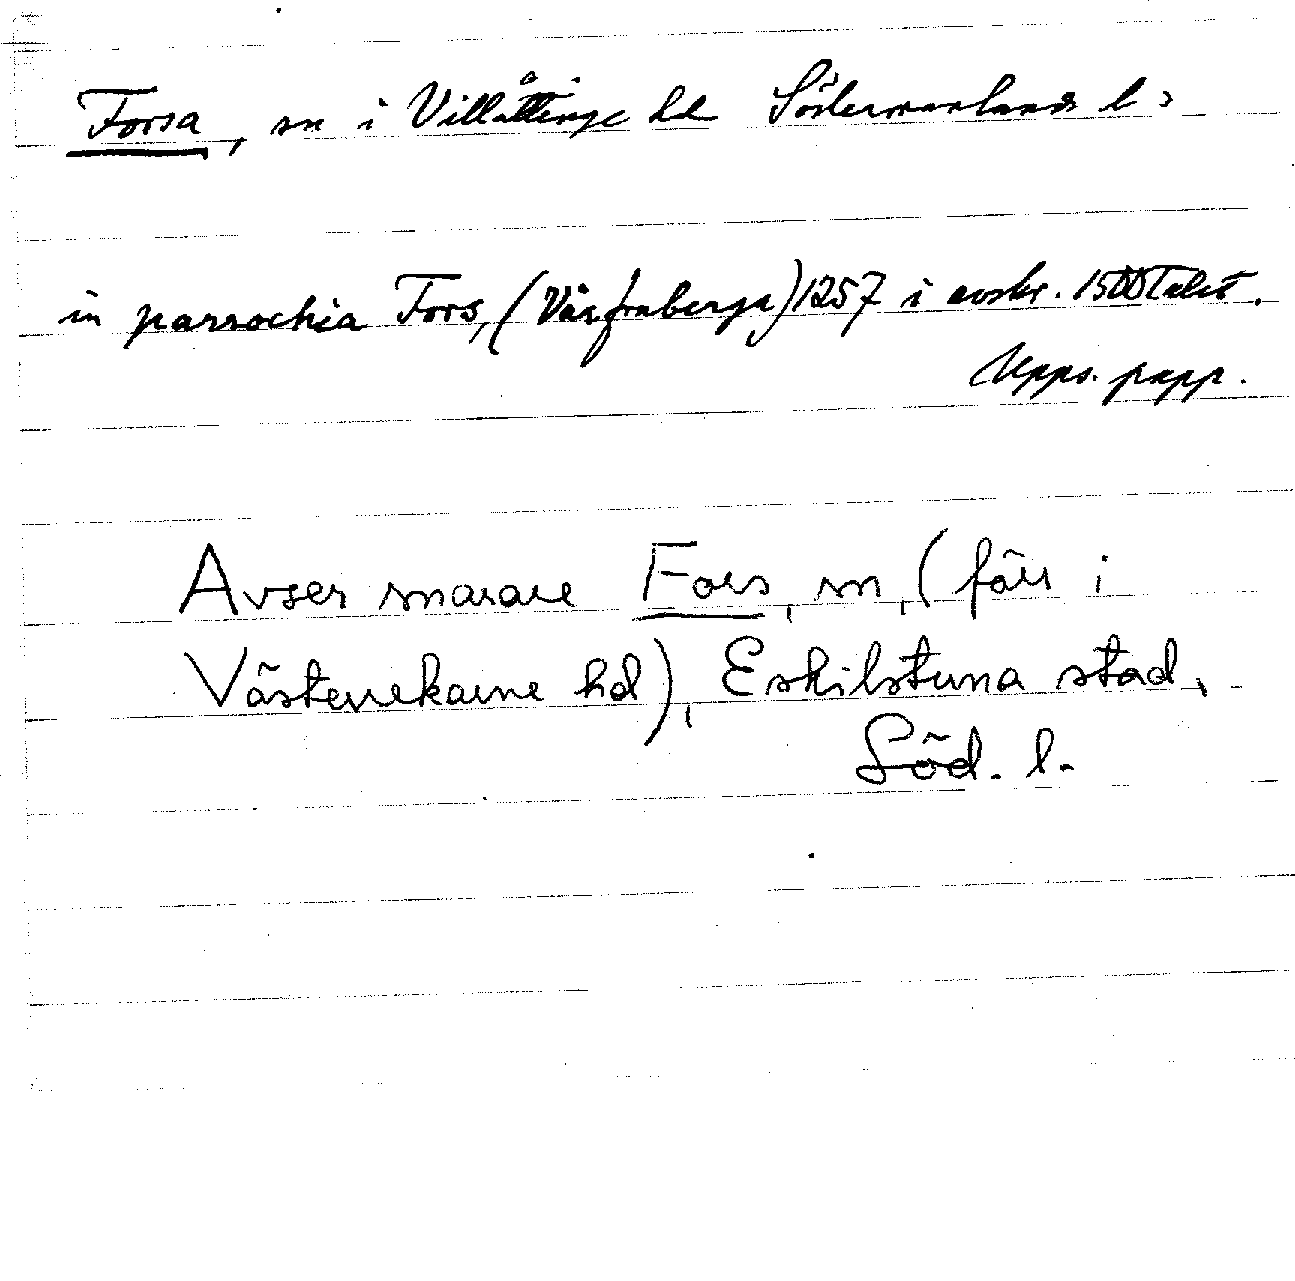 Forsa, sn i Villåttinge hd Södermanlands l.
in parrochia Fors, (Vårfruberga) 1257 i avskr. 1500talet.
Upps. papp.
Avser snarare Fors, sn, (förr i
Västerrekarne hd), Eskilstuna stad,
Söd. l.